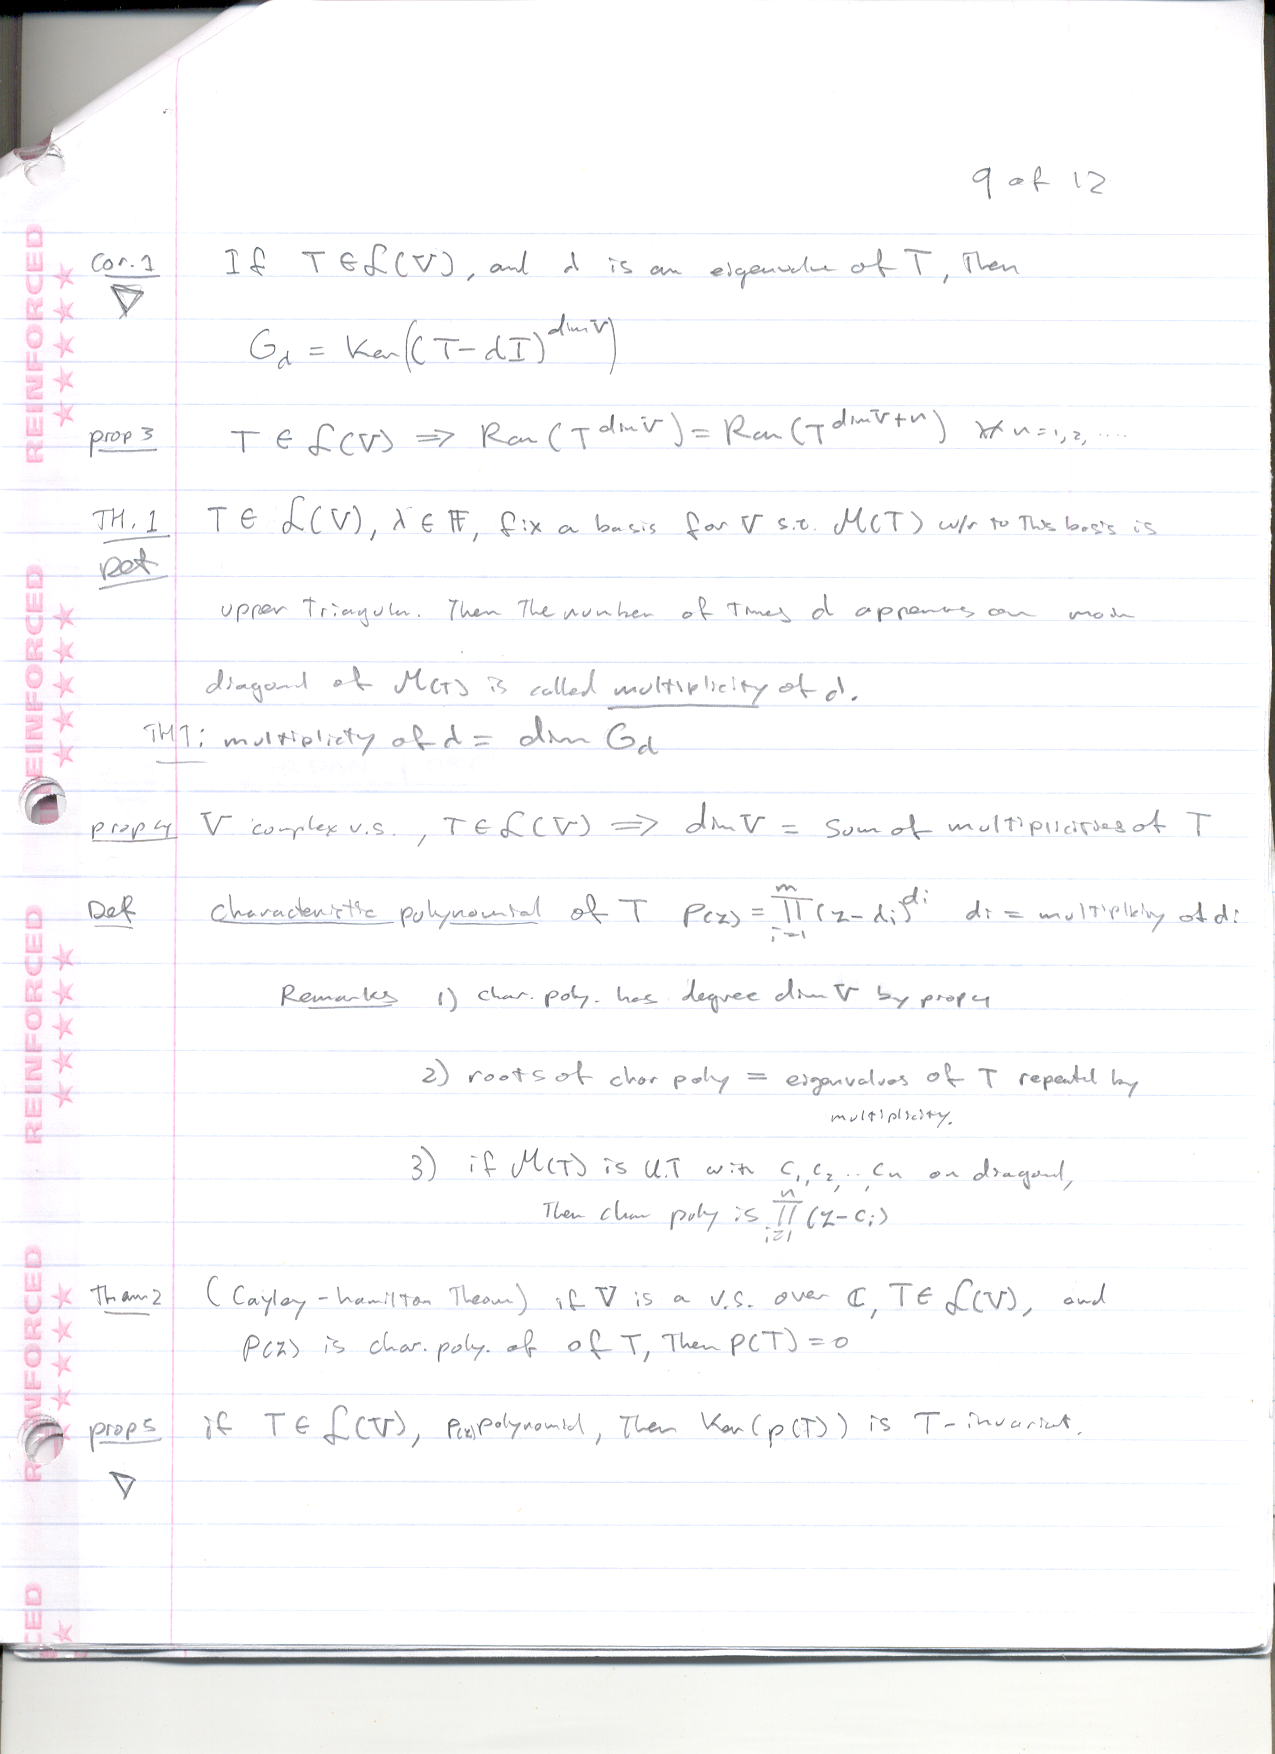 9 of 12
Cor. 1 If T ∈ ℒ(V), and d is an eigenvalue of T, Then
G_d = Ker((T-dI)^{dim V})
prop 3 T ∈ ℒ(V) ⇒ Ran(T^{dim V}) = Ran(T^{dim V+n}) ∀ n=1,2,....
TH. 1 T ∈ ℒ(V), λ ∈ 𝔽, fix a basis for V s.t. M(T) w/r to This basis is
Def
upper Triangular. Then The number of Times d appears on main
diagonal of M(T) is called multiplicity of d.
TH1: multiplicity of d = dim G_d
prop 4 V complex v.s., T ∈ ℒ(V) ⇒ dim V = sum of multiplicities of T
Def characteristic polynomial of T P(z) = ∏_{i=1}^{m} (z-d_i)^{d_i} d_i = multiplicity of d_i
Remarks 1) char. poly. has degree dim V by prop 4
2) roots of char poly = eigenvalues of T repeated by
multiplicity.
3) if M(T) is U.T with c_1, c_2, ..., c_n on diagonal,
Then char poly is ∏_{i=1}^{n} (z-c_i)
Thm 2 (Cayley-hamilton Theorem) if V is a v.s. over ℂ, T ∈ ℒ(V), and
P(z) is char. poly. of of T, Then P(T) = 0
prop 5 if T ∈ ℒ(V), P(z) polynomial, Then Ker(p(T)) is T-invariant.
REINFORCED
REINFORCED
REINFORCED
REINFORCED